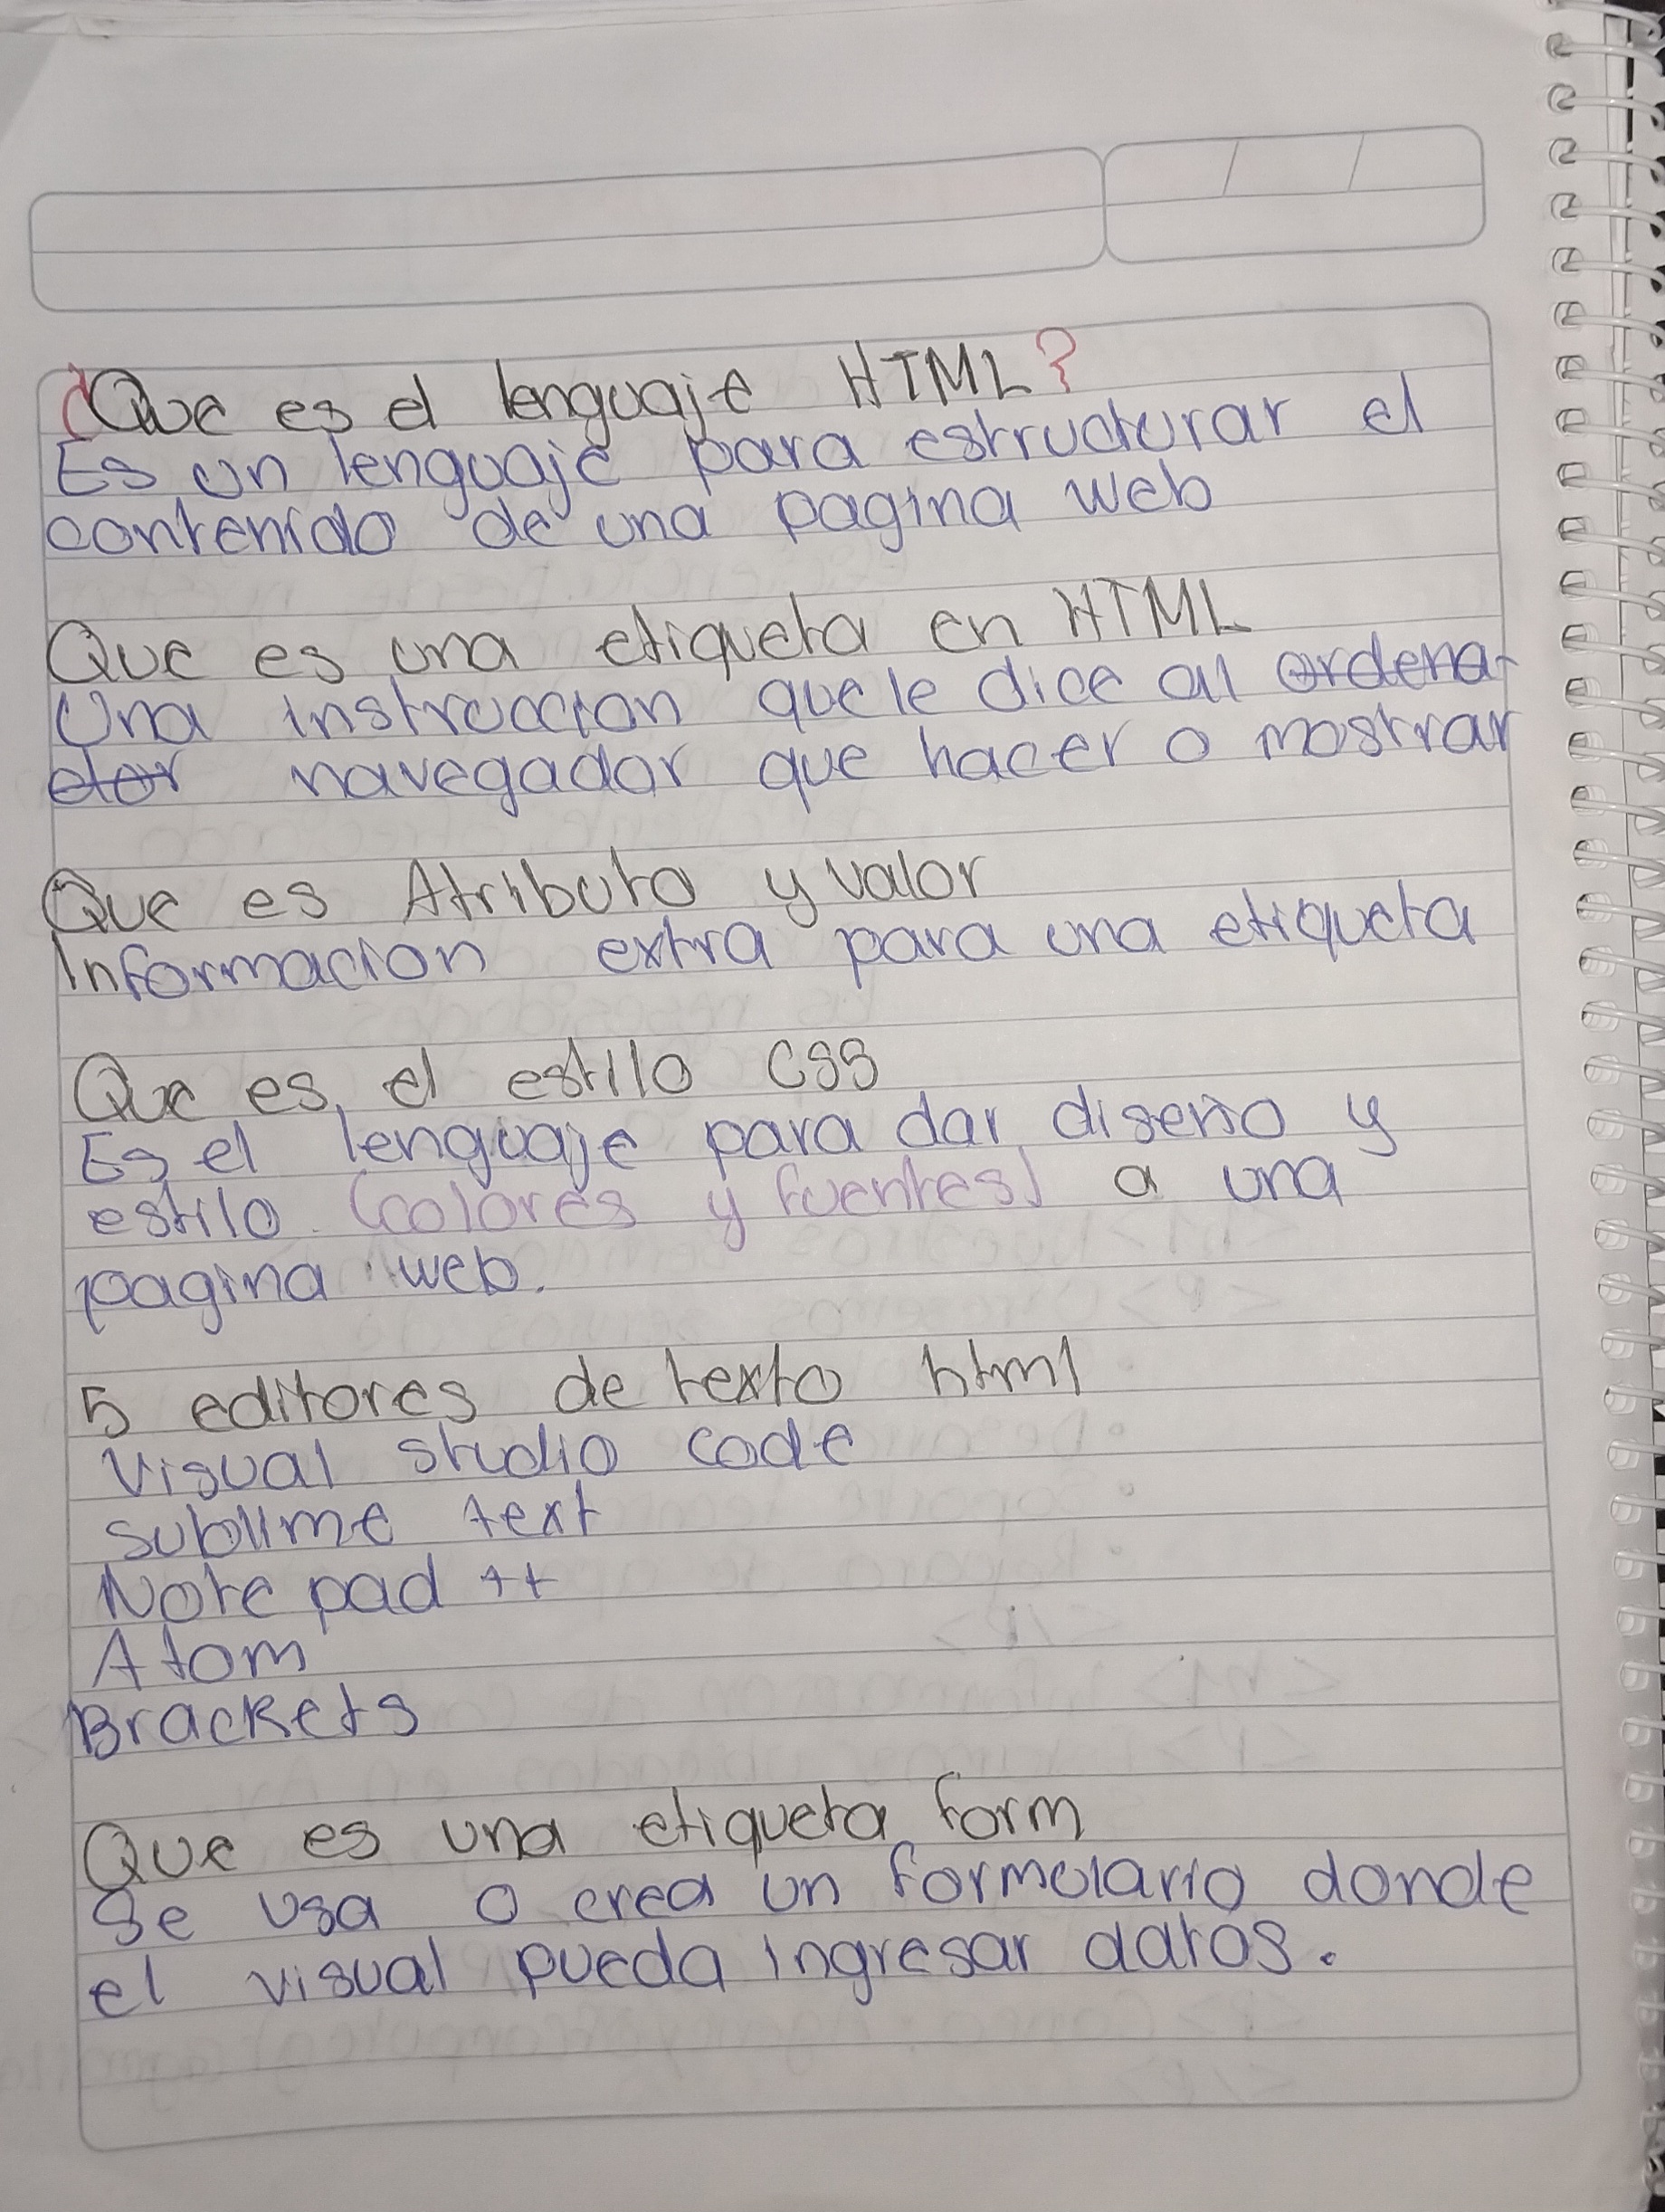 ¿Que es el lenguaje HTML?
Es un lenguaje para estructurar el
contenido de una pagina web
Que es una etiqueta en HTML
Una instruccion que le dice al ordena-
dor navegador que hacer o mostrar
Que es Atributo y valor
Informacion extra para una etiqueta
Que es el estilo CSS
Es el lenguaje para dar diseño y
estilo (colores y fuentes) a una
pagina web.
5 editores de texto html
Visual studio code
sublime text
Note pad ++
Atom
Brackets
Que es una etiqueta form
Se usa o crea un formulario donde
el visual pueda ingresar datos.